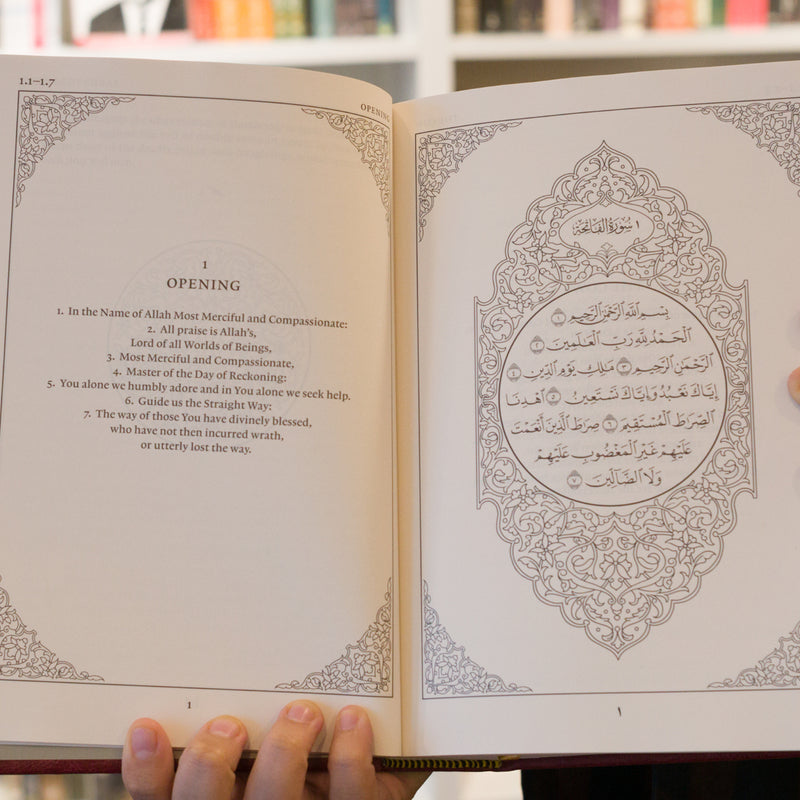 1.1–1.7
OPENING
1
OPENING
1. In the Name of Allah Most Merciful and Compassionate:
2. All praise is Allah's,
Lord of all Worlds of Beings,
3. Most Merciful and Compassionate,
4. Master of the Day of Reckoning:
5. You alone we humbly adore and in You alone we seek help.
6. Guide us the Straight Way:
7. The way of those You have divinely blessed,
who have not then incurred wrath,
or utterly lost the way.
1
١ سُورَةُ الفَاتِحَة
بِسْمِ ٱللَّهِ ٱلرَّحْمَٰنِ ٱلرَّحِيمِ ١
ٱلْحَمْدُ لِلَّهِ رَبِّ ٱلْعَٰلَمِينَ ٢
ٱلرَّحْمَٰنِ ٱلرَّحِيمِ ٣ مَٰلِكِ يَوْمِ ٱلدِّينِ ٤
إِيَّاكَ نَعْبُدُ وَإِيَّاكَ نَسْتَعِينُ ٥ ٱهْدِنَا
ٱلصِّرَٰطَ ٱلْمُسْتَقِيمَ ٦ صِرَٰطَ ٱلَّذِينَ أَنْعَمْتَ
عَلَيْهِمْ غَيْرِ ٱلْمَغْضُوبِ عَلَيْهِمْ
وَلَا ٱلضَّآلِّينَ ٧
١